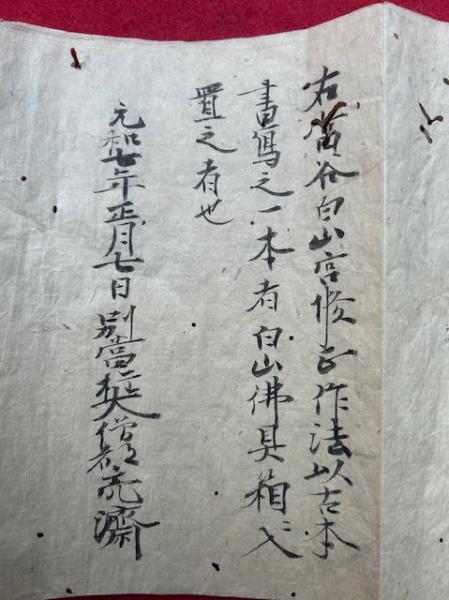 右當谷白山宮修正作法以古本
書寫之一本者白山佛具箱ニ入
置之者也
元和七年正月七日別當権大僧都亮濟